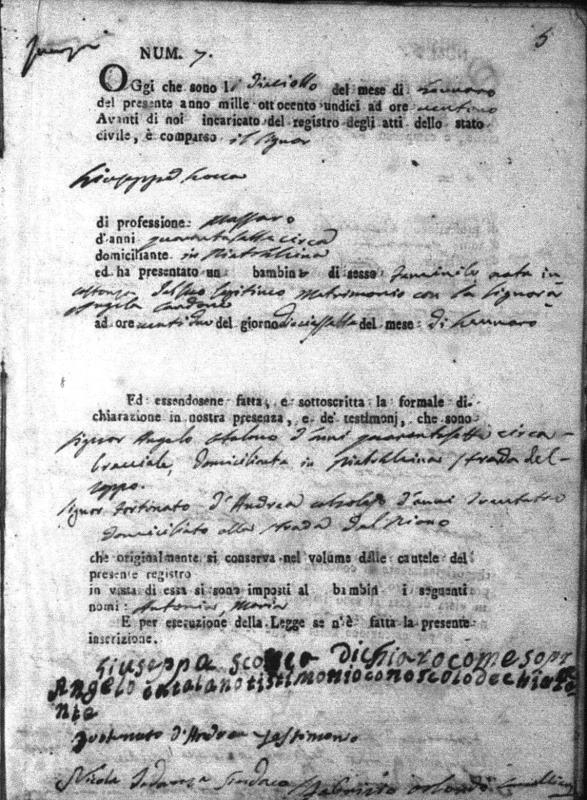 5
NUM. 7.
OGgi che sono li dieciotto del mese di Gennaro
del presente anno mille ottocento undici ad ore ventuno
Avanti di noi incaricato del registro degli atti dello stato
civile, è comparso il Signor
Giuseppe Scocca
di professione Massaro
d'anni quarantasette circa
domiciliante in Pietralcina
ed ha presentato un bambina di sesso Feminile nata in
dal suo legitimo Matrimonio con la Signora
Angela Cardone
ad ore ventidue del giorno diciassette del mese di Gennaro
Ed essendosene fatta, e sottoscritta la formale di-
chiarazione in nostra presenza, e de' testimonj, che sono
Signor Angelo Catalano d'anni quarantasette circa
bracciale, domiciliante in Pietralcina strada del
Signor Fortunato d'Andrea d'anni trentatre
domiciliato alla strada del Piano
che originalmente si conserva nel volume delle cautele del
presente registro
in vista di essa si sono imposti al bambin i seguenti
nomi: Antonia Maria
E per esecuzione della Legge se n'è fatta la presente
inscrizione.
Giuseppe Scocca dichiaro come sopr
Angelo Catalano tistimonio conoscolo dechiara
nte
Fortunato d'Andrea testimonio
Nicola Sindaco Orlando